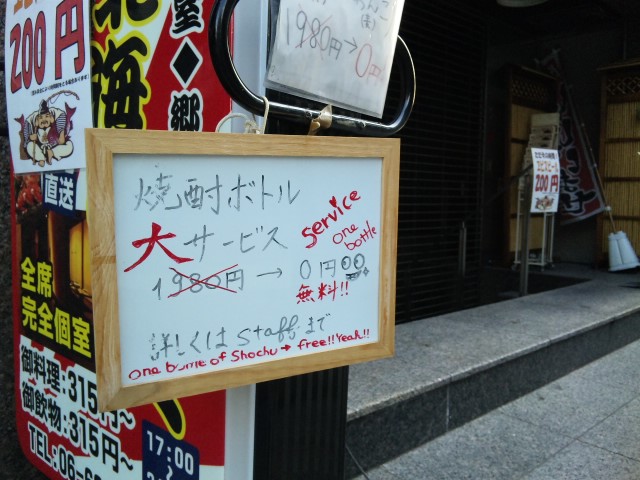 200円
北海
室◆郷
直送
全席
完全個室
御料理:315円~
御飲物:315円~
TEL:06-6
17:00
1980円→0円
焼酎ボトル
大サービス
service
one
bottle
1980円→0円
無料!!
詳しくはstaffまで
one bottle of Shochu→free!!Yeah!!
200円